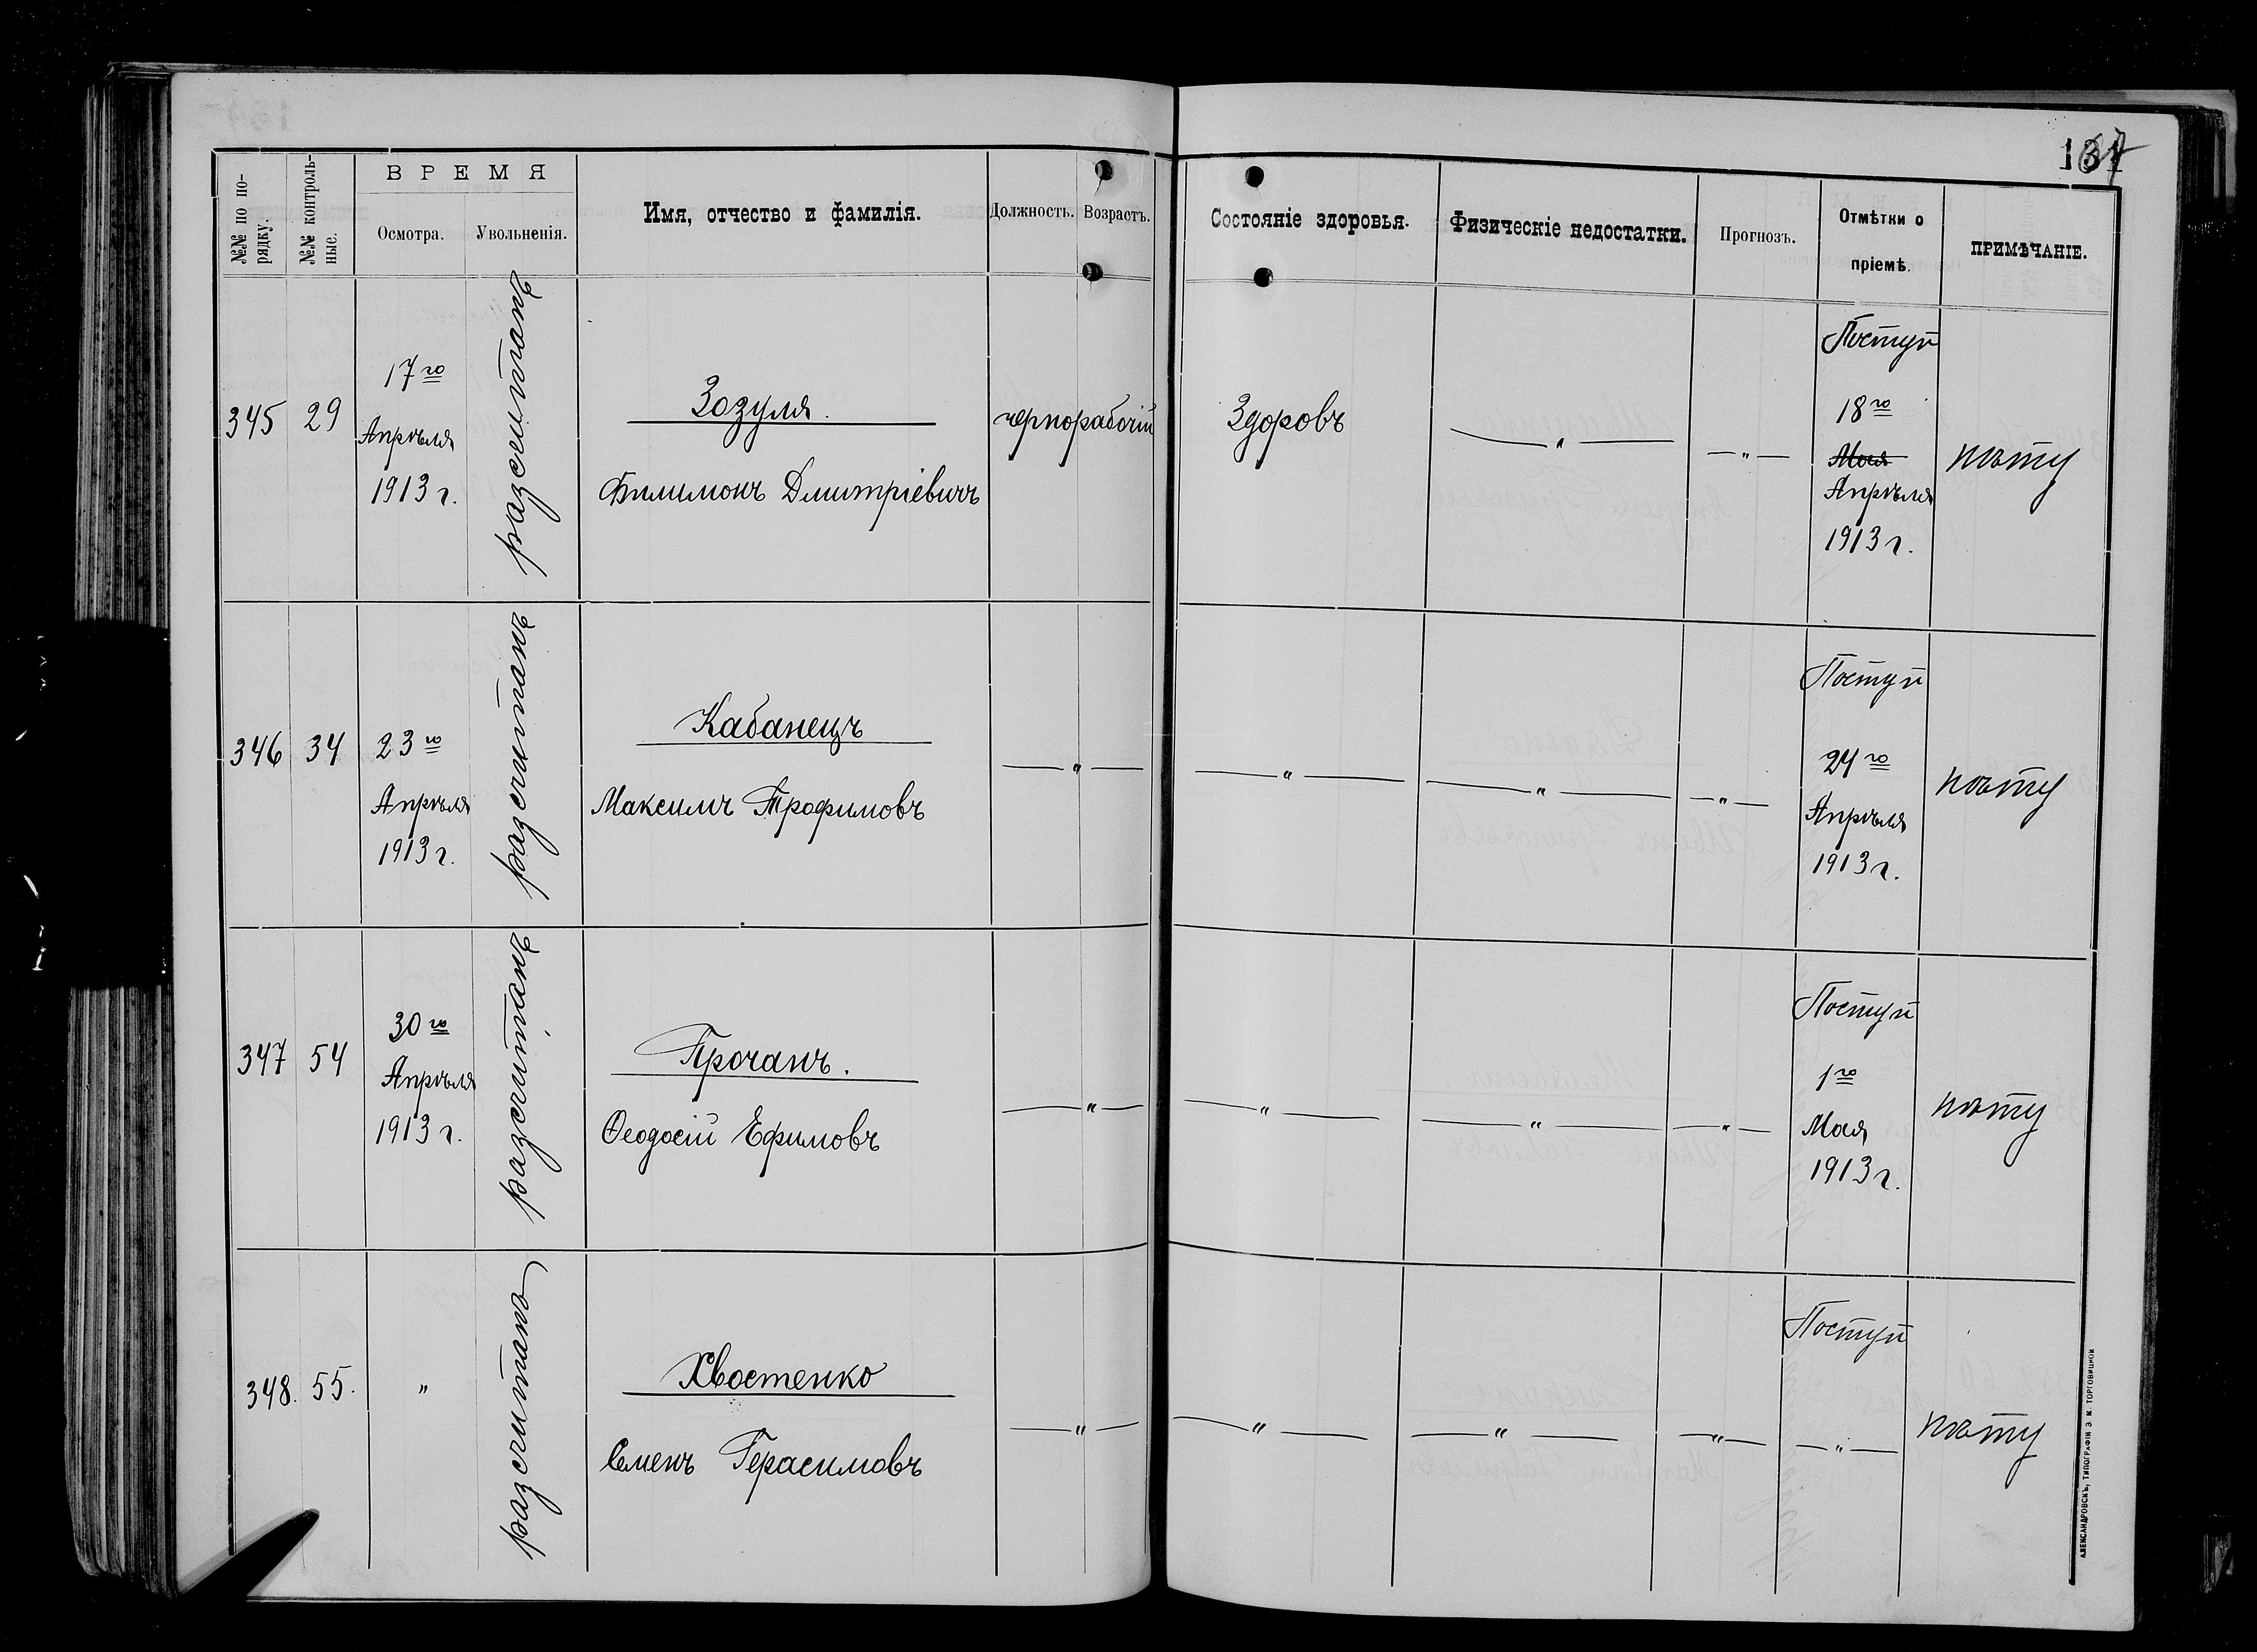 №№ по по-
рядку.
№№ контроль-
ные.
ВРЕМЯ
Осмотра.
Увольненія.
Имя, отчество и фамилія.
Должность.
Возрастъ.
Состояніе здоровья.
Физическіе недостатки.
Прогнозъ.
Отмѣтки о
пріемѣ.
ПРИМѢЧАНІЕ.
345
29
17го
Апрѣля
1913 г.
разсчитанъ
Зозуля.
Филимонъ Дмитріевичъ
чернорабочій
Здоровъ
— " —
— " —
Поступ
18го
Мая
Апрѣля
1913 г.
346
34
23го
Апрѣля
1913 г.
разсчитанъ
Кабанецъ
Максимъ Трофимовъ
— " —
— " —
— " —
— " —
Поступ
24го
Апрѣля
1913 г.
347
54
30го
Апрѣля
1913 г.
разсчитанъ
Прочанъ.
Ѳеодосій Ефимовъ
— " —
— " —
— " —
— " —
Поступ
1го
Мая
1913 г.
348.
55.
"
разсчитанъ
Хвостенко
Семенъ Герасимовъ
— " —
— " —
— " —
— " —
Поступ
— " —
АЛЕКСАНДРОВСКЪ, ТИПОГРАФІЯ Э. М. ТОРГОВИЦКОЙ